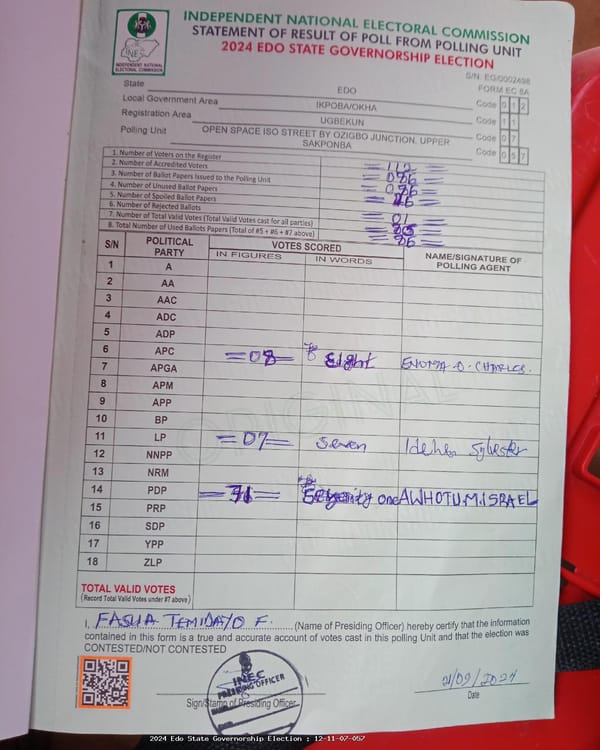 INDEPENDENT NATIONAL ELECTORAL COMMISSION
STATEMENT OF RESULT OF POLL FROM POLLING UNIT
2024 EDO STATE GOVERNORSHIP ELECTION
INEC
INDEPENDENT NATIONAL ELECTORAL COMMISSION
S/N EG/0002498
FORM EC 8A
State EDO
Local Government Area IKPOBA/OKHA Code 0 1 2
Registration Area UGBEKUN Code 1 1
Polling Unit OPEN SPACE ISO STREET BY OZIGBO JUNCTION, UPPER SAKPONBA Code 0 7
Code 0 5 7
1. Number of Voters on the Register 112
2. Number of Accredited Voters 086
3. Number of Ballot Papers Issued to the Polling Unit 086
4. Number of Unused Ballot Papers
5. Number of Spoiled Ballot Papers
6. Number of Rejected Ballots 01
7. Number of Total Valid Votes (Total Valid Votes cast for all parties)
8. Total Number of Used Ballots Papers (Total of #5 + #6 + #7 above) 86
S/N POLITICAL PARTY VOTES SCORED NAME/SIGNATURE OF POLLING AGENT
IN FIGURES IN WORDS
1 A
2 AA
3 AAC
4 ADC
5 ADP
6 APC =08= Eight
7 APGA
8 APM
9 APP
10 BP
11 LP =07= Seven Idehen Sylvester
12 NNPP
13 NRM
14 PDP one AWHOTU.M.ISRAEL
15 PRP
16 SDP
17 YPP
18 ZLP
ORIGINAL
TOTAL VALID VOTES
(Record Total Valid Votes under #7 above)
I, FASUA TEMIDAYO F. (Name of Presiding Officer) hereby certify that the information
contained in this form is a true and accurate account of votes cast in this polling Unit and that the election was
CONTESTED/NOT CONTESTED
INEC
PRESIDING OFFICER
21/09/2024
Sign/Stamp of Presiding Officer
Date
2024 Edo State Governorship Election : 12-11-07-057